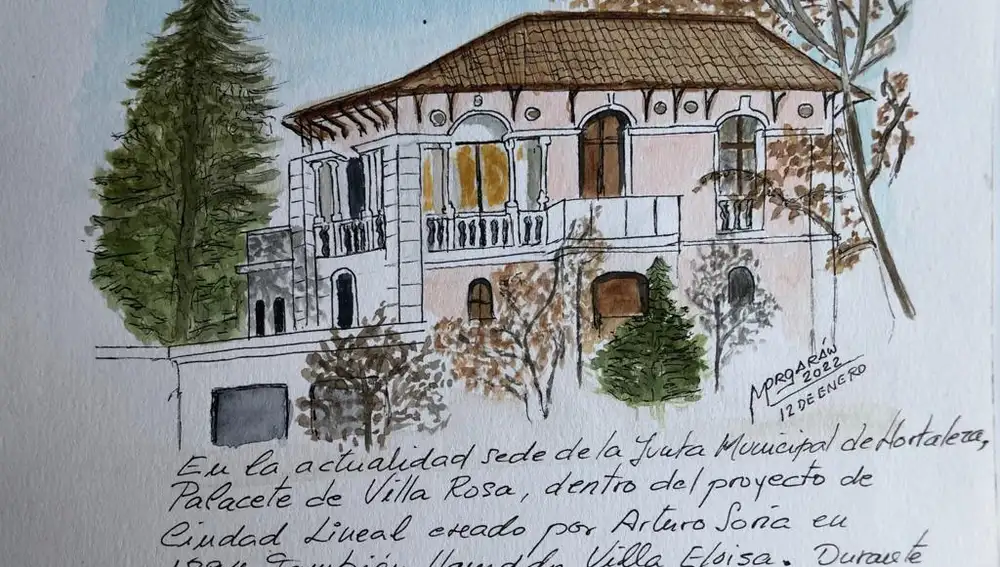 MORGARÁN
2022
12 DE ENERO
En la actualidad sede de la Junta Municipal de Hortaleza,
Palacete de Villa Rosa, dentro del proyecto de
Ciudad Lineal creado por Arturo Soria en
También Villa Eloisa. Durante